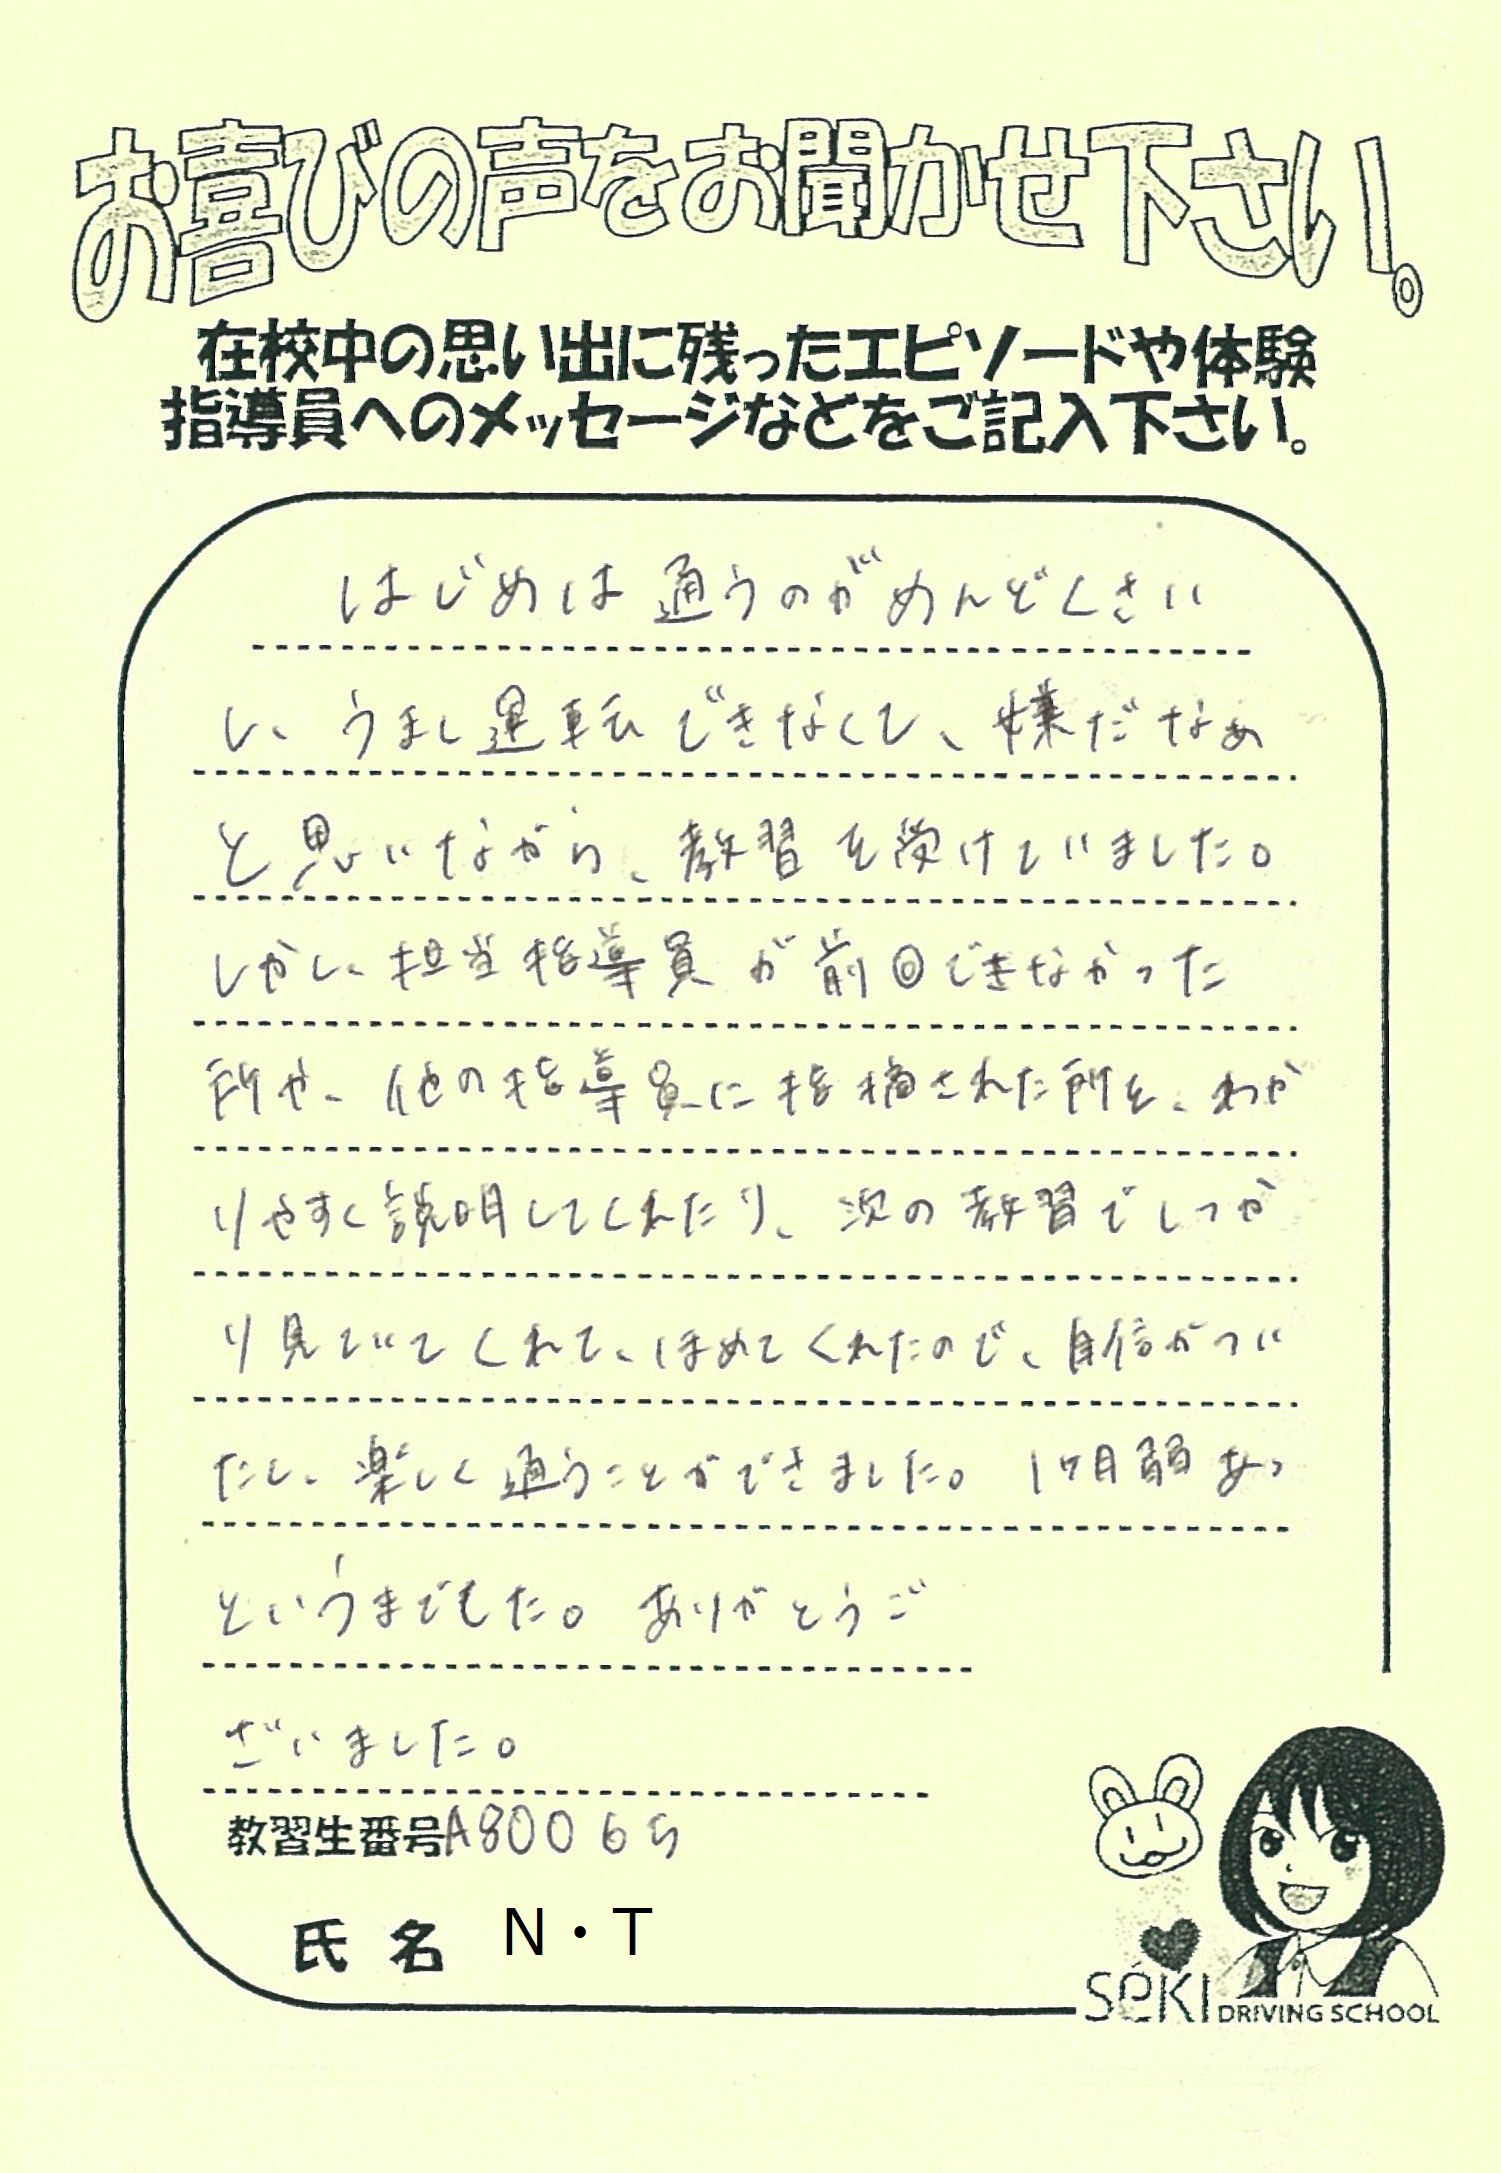 お喜びの声をお聞かせ下さい。
在校中の思い出に残ったエピソードや体験
指導員へのメッセージなどをご記入下さい。
はじめは通うのがめんどくさい
し、うまく運転できなくて、嫌だなぁ
と思いながら、教習を受けていました。
しかし、担当指導員が前回できなかった
所や、他の指導員に指摘された所を、わか
りやすく説明してくれたり、次の教習でしっか
り見ていてくれて、ほめてくれたので、自信がつい
たし、楽しく通うことができました。1ヶ月弱あっ
というまでした。ありがとうご
ざいました。
教習生番号A80065
氏名 N・T
SéKI DRIVING SCHOOL